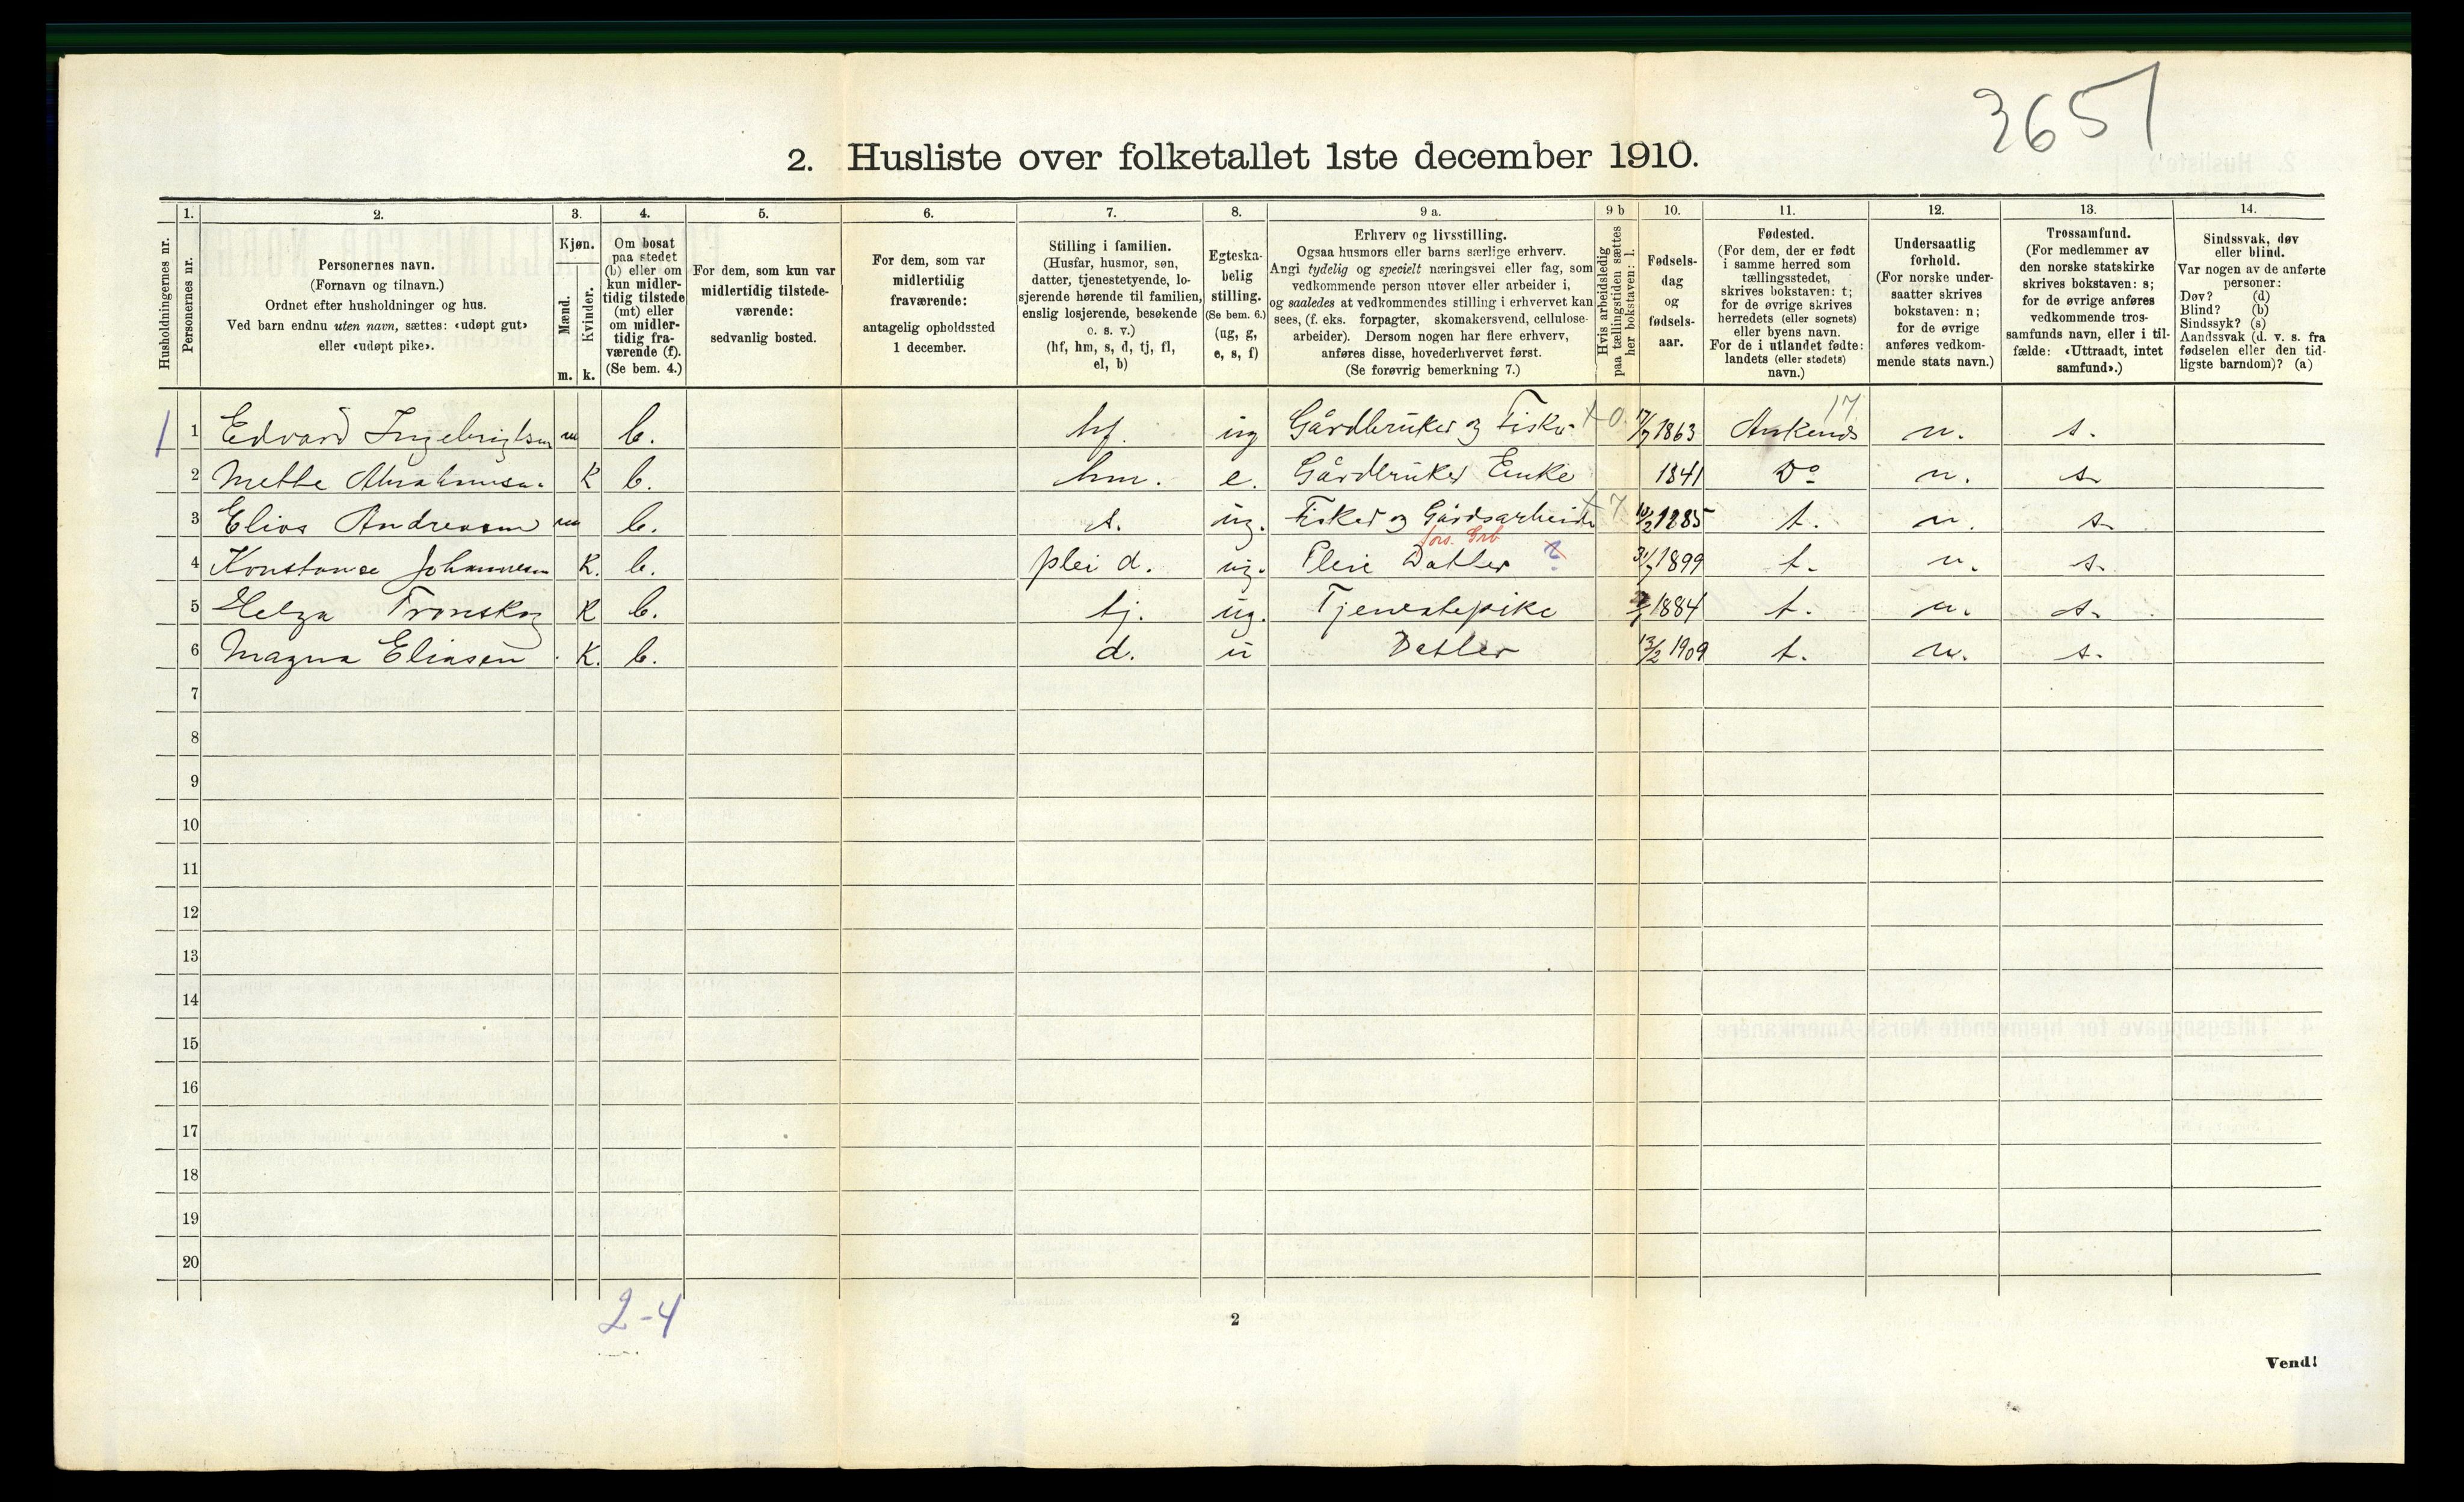 3651
2. Husliste over folketallet 1ste december 1910.
Husholdningernes nr.
1.
Personernes nr.
2.
Personernes navn.
(Fornavn og tilnavn.)
Ordnet efter husholdninger og hus.
Ved barn endnu uten navn, sættes: «udøpt gut»
eller «udøpt pike».
3.
Kjøn.
Mænd.
Kvinder.
m. k.
4.
Om bosat
paa stedet
(b) eller om
kun midler-
tidig tilstede
(mt) eller
om midler-
tidig fra-
værende (f).
(Se bem. 4.)
5.
For dem, som kun var
midlertidig tilstede-
værende:
sedvanlig bosted.
6.
For dem, som var
midlertidig
fraværende:
antagelig opholdssted
1 december.
7.
Stilling i familien.
(Husfar, husmor, søn,
datter, tjenestetyende, lo-
sjerende hørende til familien,
enslig losjerende, besøkende
o. s. v.)
(hf, hm, s, d, tj, fl,
el, b)
8.
Egteska-
belig
stilling.
(Se bem. 6.)
(ug, g,
e, s, f)
9 a.
Erhverv og livsstilling.
Ogsaa husmors eller barns særlige erhverv.
Angi tydelig og specielt næringsvei eller fag, som
vedkommende person utøver eller arbeider i,
og saaledes at vedkommendes stilling i erhvervet kan
sees, (f. eks. forpagter, skomakersvend, cellulose-
arbeider). Dersom nogen har flere erhverv,
anføres disse, hovederhvervet først.
(Se forøvrig bemerkning 7.)
9 b
Hvis arbeidsledig
paa tællingstiden sættes
her bokstaven: l.
10.
Fødsels-
dag
og
fødsels-
aar.
11.
Fødested.
(For dem, der er født
i samme herred som
tællingsstedet,
skrives bokstaven: t;
for de øvrige skrives
herredets (eller sognets)
eller byens navn.
For de i utlandet fødte:
landets (eller stedets)
navn.)
12.
Undersaatlig
forhold.
(For norske under-
saatter skrives
bokstaven: n;
for de øvrige
anføres vedkom-
mende stats navn.)
13.
Trossamfund.
(For medlemmer av
den norske statskirke
skrives bokstaven: s;
for de øvrige anføres
vedkommende tros-
samfunds navn, eller i til-
fælde: «Uttraadt, intet
samfund».)
14.
Sindssvak, døv
eller blind.
Var nogen av de anførte
personer:
Døv? (d)
Blind? (b)
Sindssyk? (s)
Aandssvak (d. v. s. fra
fødselen eller den tid-
ligste barndom)? (a)
17
1 1 Edvard Ingebrigtsen m b. hf. ug Gårdbruker og Fisker 0. 17/7 1863 n. s.
2 Mette K b. hm. e. Gårdbruker Enke 1841 Do n. s.
3 Elias Andreasen m b. s. ug. Fisker og Gårdsarbeider 7 1885 t. n. s.
fors. Grb
4 Konstanse Johannesen K. b. plei d. ug. Pleie Datter 31/7 1899 t. n. s.
5 Helga K b. tj. ug. Tjenestepike 1884 t. n. s.
6 Magna Eliasen K. b. d. u Datter 13/2 1909 t. n. s.
7
8
9
10
11
12
13
14
15
16
17
18
19
20
2-4
2
Vend!